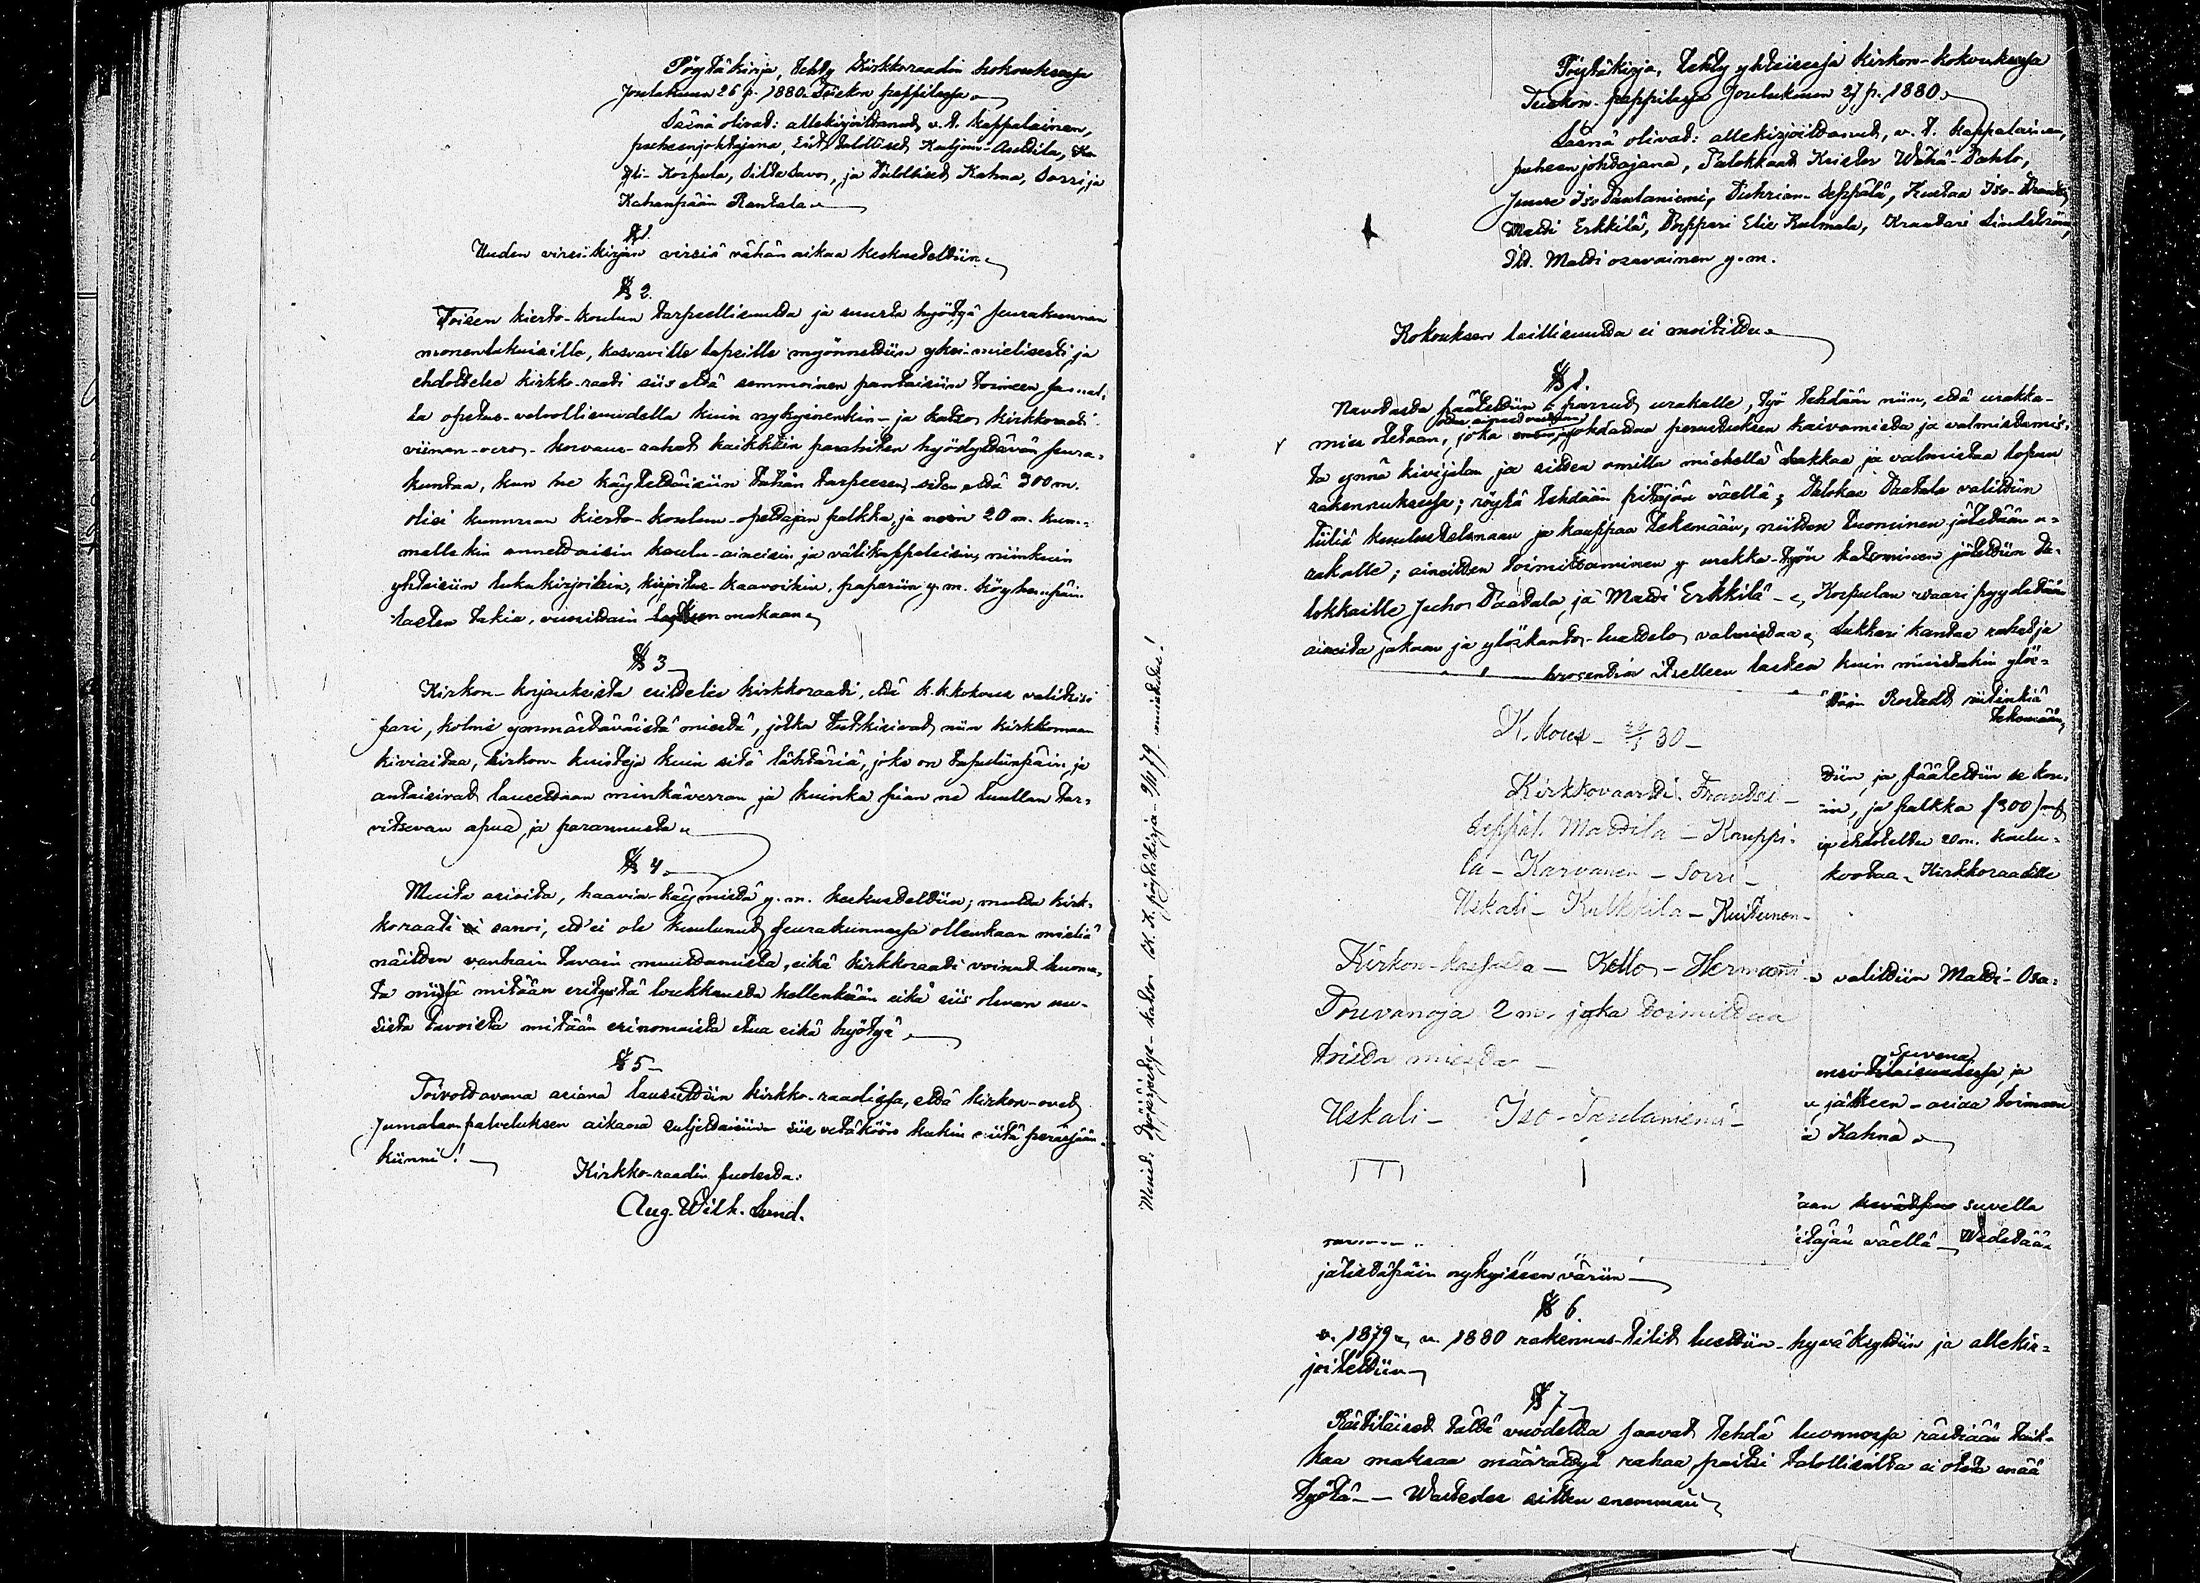 Pöytäkirja, tehty Kirkkoraadin kokouksessa
Joulukuun 26 p. 1880. Teiskon pappilassa
Läsnä olivat: allekirjoittanut, v. t. kappalainen,
puheenjohtajana, Eist. talolliset Mattila,
Korpula, Savo, ja talolliset Kahna, Sorri, ja
Kahanpään Rantala.
§ 1.
Uuden virsi-kirjan virsiä vähän aikaa keskusteltiin.
§ 2.
Toisen kierto-koulun tarpeellisuutta ja suurta hyötyä seurakunnan
monenlukuisille, kasvaville lapsille myönnettiin yksi-mielisesti ja
ehdottelee kirkko-raati siis että semmoinen pantaisiin toimeen samal-
la opetus-velvollisuudella kuin nykyinenkin - ja katsoo kirkkoraati
viinan-vero-korvaus-rahat kaikkein parahiten hyödyttävän seura-
kuntaa, kun ne käytettäisiin tähän tarpeeseen, siten että 300 m.
olisi kumman kierto-koulun-opettajan palkka, ja noin 20 m. kum-
mallekin annettaisiin koulu-aineisin ja välikappaleisin, niinkuin
yhteisiin lukukirjoihin, kirjoitus-kaavoihin, paperiin y. m. köyhempäin
lasten takia, vuosittain mukaan.
§ 3
Kirkon-korjauksista esittelee kirkkoraati, että k.k.kokous valitsisi
pari, kolme ymmärtäväistä miestä, jotka tutkisivat niin kirkkomaan
kiviaitaa, kirkon-kuisteja kuin sitä lähtäriä, joka on tapulinpäin, ja
antaisivat lauseensa minkäverran ja kuinka pian ne luullan tar-
vitsevan apua ja parannusta.
§ 4.
Muita asioita, haavin-käymistä y. m. keskusteltiin; mutta kirk-
koraati sanoi, ett'ei ole kuulunut seurakunnassa ollenkaan mieliä
näitten vanhain tavain muuttamista, eikä kirkkoraati voinut huoma-
ta niissä mitään erityistä loukkausta kellenkään eikä siis olevan uu-
sista tavoista mitään erinomaista etua eikä hyötyä.
§ 5
Toivottavana asiana lausuttiin kirkko-raadissa, että kirkon-ovet
Jumalan palveluksen aikana suljettaisiin - siis vetäköön kukin niitä perässään
kiinni!
Kirkko-raadin puolesta:
Aug. Wilh. Lund.
K. K. pöytäkirja
Pöytäkirja, tehty yhteisessä kirkon-kokouksessa
Teiskon pappilassa Joulukuun 27 p. 1880.
Läsnä olivat: allekirjoittanut, v. t. kappalainen,
puheenjohtajana, Talokkaat Krister Wähä-Pohto,
Iso Taulaniemi, Seppälä, Kustaa Iso-
Matti Erkkilä, Torppari Elis Kulmala, Kraatari Lindström,
Itd. Matti osavainen y. m.
Kokouksen laillisuutta ei moitittu.
§ 1.
Navetasta päätettiin parsut urakalle, työ tehdään niin, että urakka-
mies otetaan, joka johdattaa perustuksen kaivamista ja valmistamis-
ta ynnä kivijalan ja sitten omilla miehellä hakkaa ja valmistaa lopun
rakennuksessa; röystä tehdään pitäjän väellä; Talokas Paatala valittiin
tiiliä kuulustelemaan ja kauppaa tekemään, niitten tuominen jätetään u-
rakalle; aineitten toimittaminen y urakka-työn katsominen jätettiin ta-
lokkaille Juho Paatala, ja Matti Erkkilä - Korpulan vaari pyydetään
aineita jakaan ja ylöskanto-luettelo valmistaa. Lukkari kantaa rahat ja
prosentin itselleen lasten kuin muistakin ylös-
K. kous 30
tekemään,
Kirkkovaartti Frantsi
tiin, ja päätettiin se kou-
in, ja palkka (300) m
Seppäl. Mattila - Kauppi-
ehdoteltu 20 m. koulu-
la - Karvanen - Sorri
kootaa. Kirkkoraadille
Uskali - Kulkkila - Kuitunen
Kirkon - Kello - Hermanni
valittiin Matti-Osa-
Touvanoja 2 m. joka toimittaa
toista miestä
suvena
ja
Uskali - Iso-Taulaniemi
jälkeen - asiaa toimeen
Kahna.
aan suvella
itäjän väellä - Wedetään
jälistäpäin nykyiseen väriin
§ 6.
v. 1879 v. 1880 rakennus-tilit luettiin - hyväksyttiin ja allekir-
joitettiin
§ 7
Rästiläiset tältä vuodelta saavat tehdä luonnossa rästiään taik-
kaa maksaa määrättyä rahaa, paitsi talollisilta ei oteta enää
työtä - Wastedes sitten enemmän